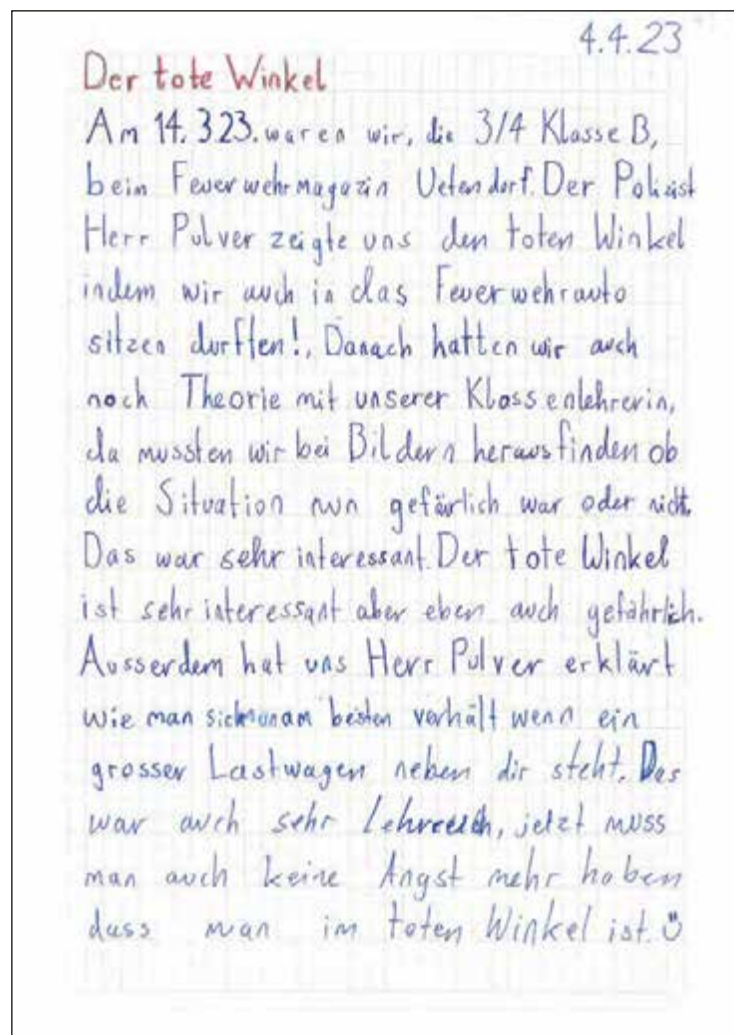 4.4.23
Der tote Winkel
Am 14.3.23. waren wir, die 3/4 Klasse B,
beim Feuerwehrmagazin Uetendorf. Der Polizist
Herr Pulver zeigte uns den toten Winkel
indem wir auch in das Feuerwehrauto
sitzen durften!, Danach hatten wir auch
noch Theorie mit unserer Klassenlehrerin,
da mussten wir bei Bildern herausfinden ob
die Situation nun gefärlich war oder nicht.
Das war sehr interessant. Der tote Winkel
ist sehr interessant aber eben auch gefährlich.
Ausserdem hat uns Herr Pulver erklärt
wie man sich am besten verhält wenn ein
grosser Lastwagen neben dir steht. Das
war auch sehr lehrreich, jetzt muss
man auch keine Angst mehr haben
dass man im toten Winkel ist.